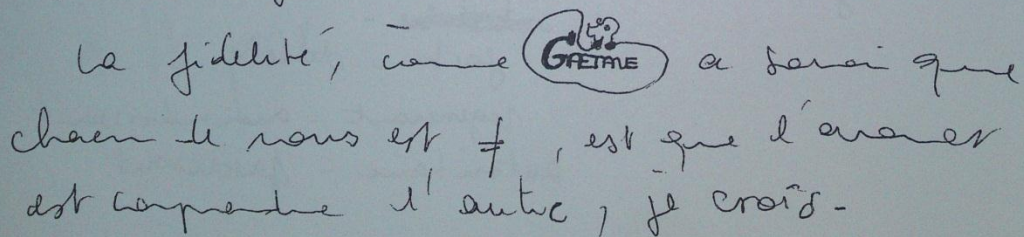 la fidélité, comme GAETANE a savoir que
chacun de nous est ≠, est que l'avouer
est comprendre l'autre, je crois.